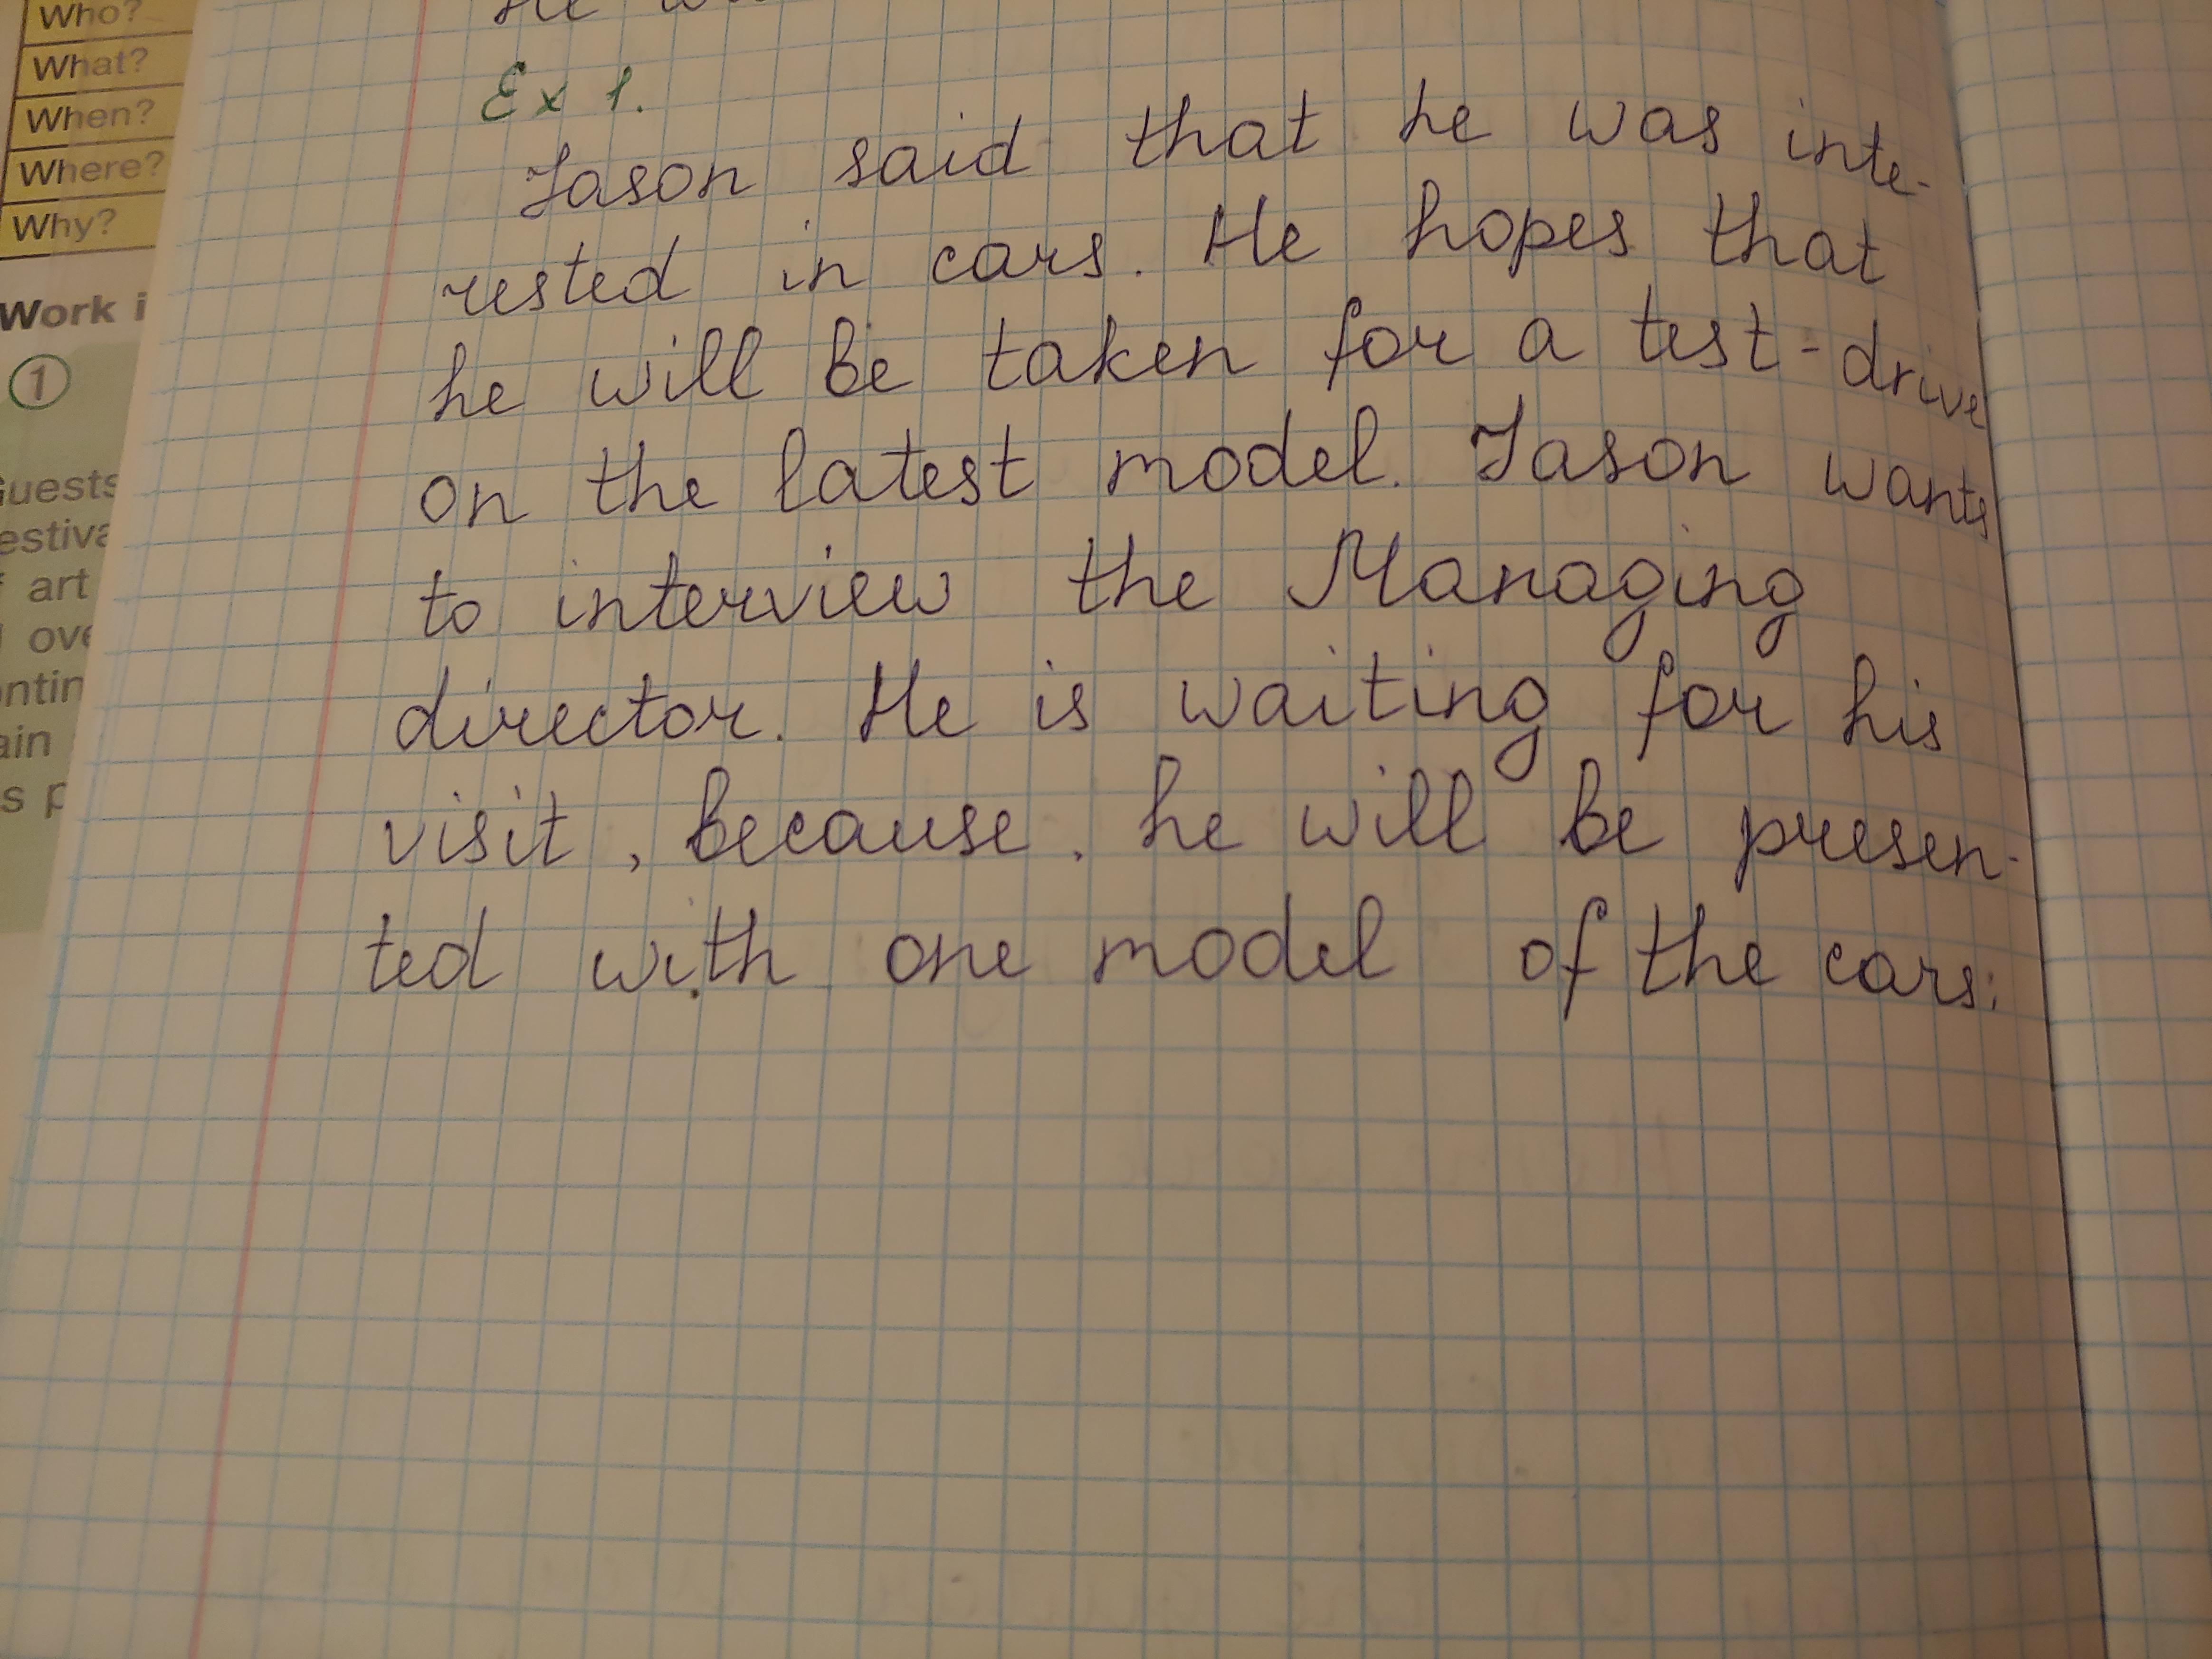 Who?
What?
When?
Where?
Why?
Work i
1
art
He
Ex 1.
Jason said that he was inte-
rested in cars. He hopes that
he will be taken for a test-drive
on the latest model. Jason wants
to interview the Managing
director. He is waiting for his
visit, because, he will be presen-
ted with one model of the cars;